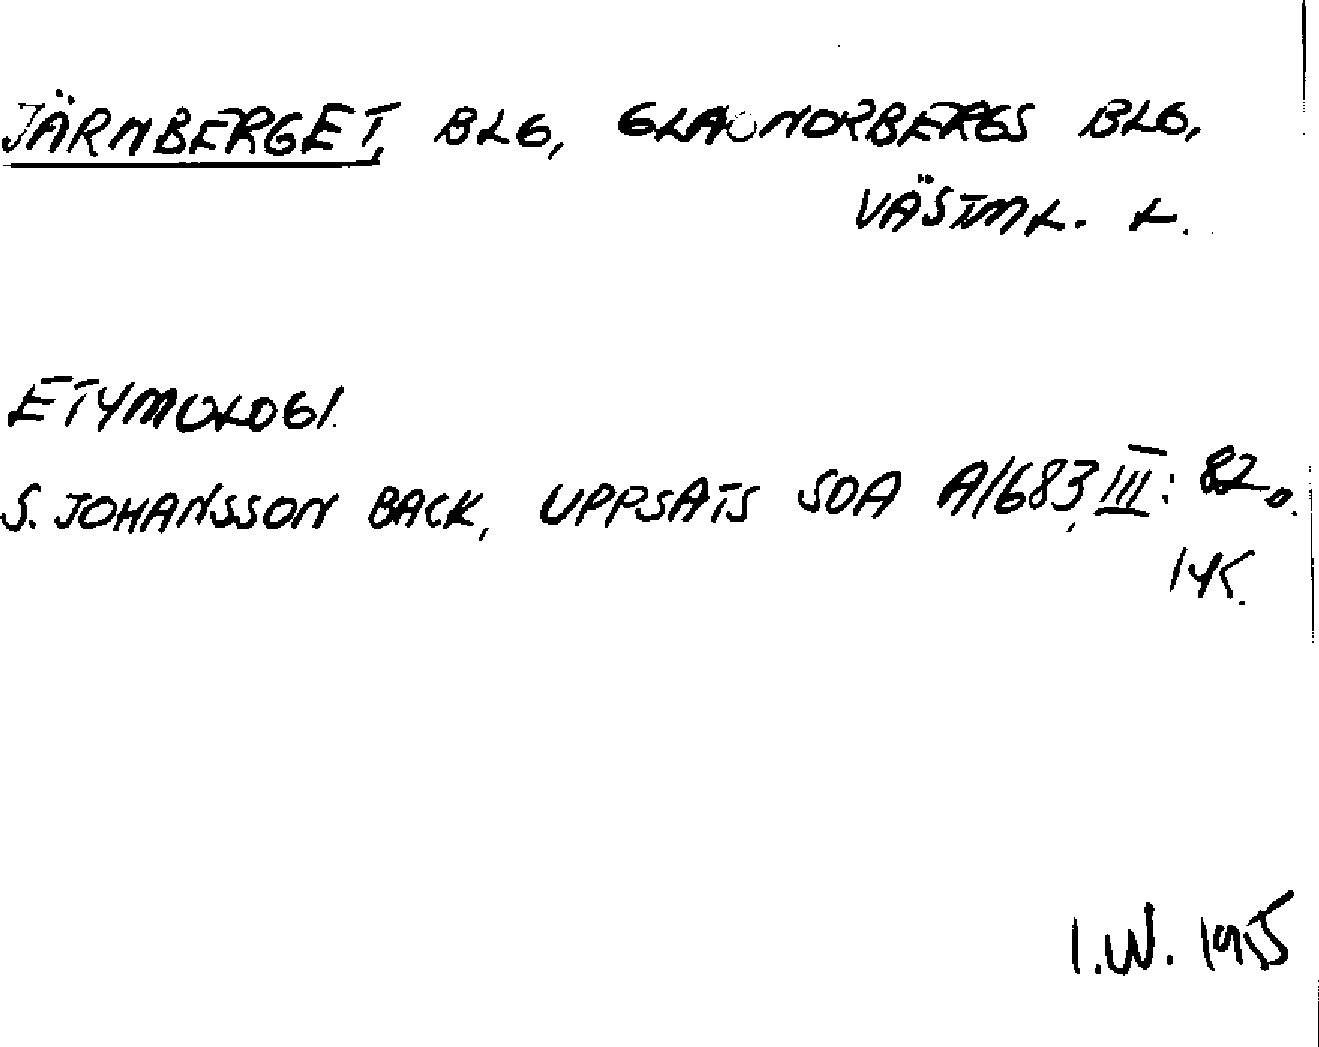 JÄRNBERGET, BLG, GLA NORBERGS BLG,
VÄSTML. L.
ETYMOLOGI.
S. JOHANSSON BACK, UPPSATS SOA A/683, III: 82 o.
IYK.
I.W. 1975